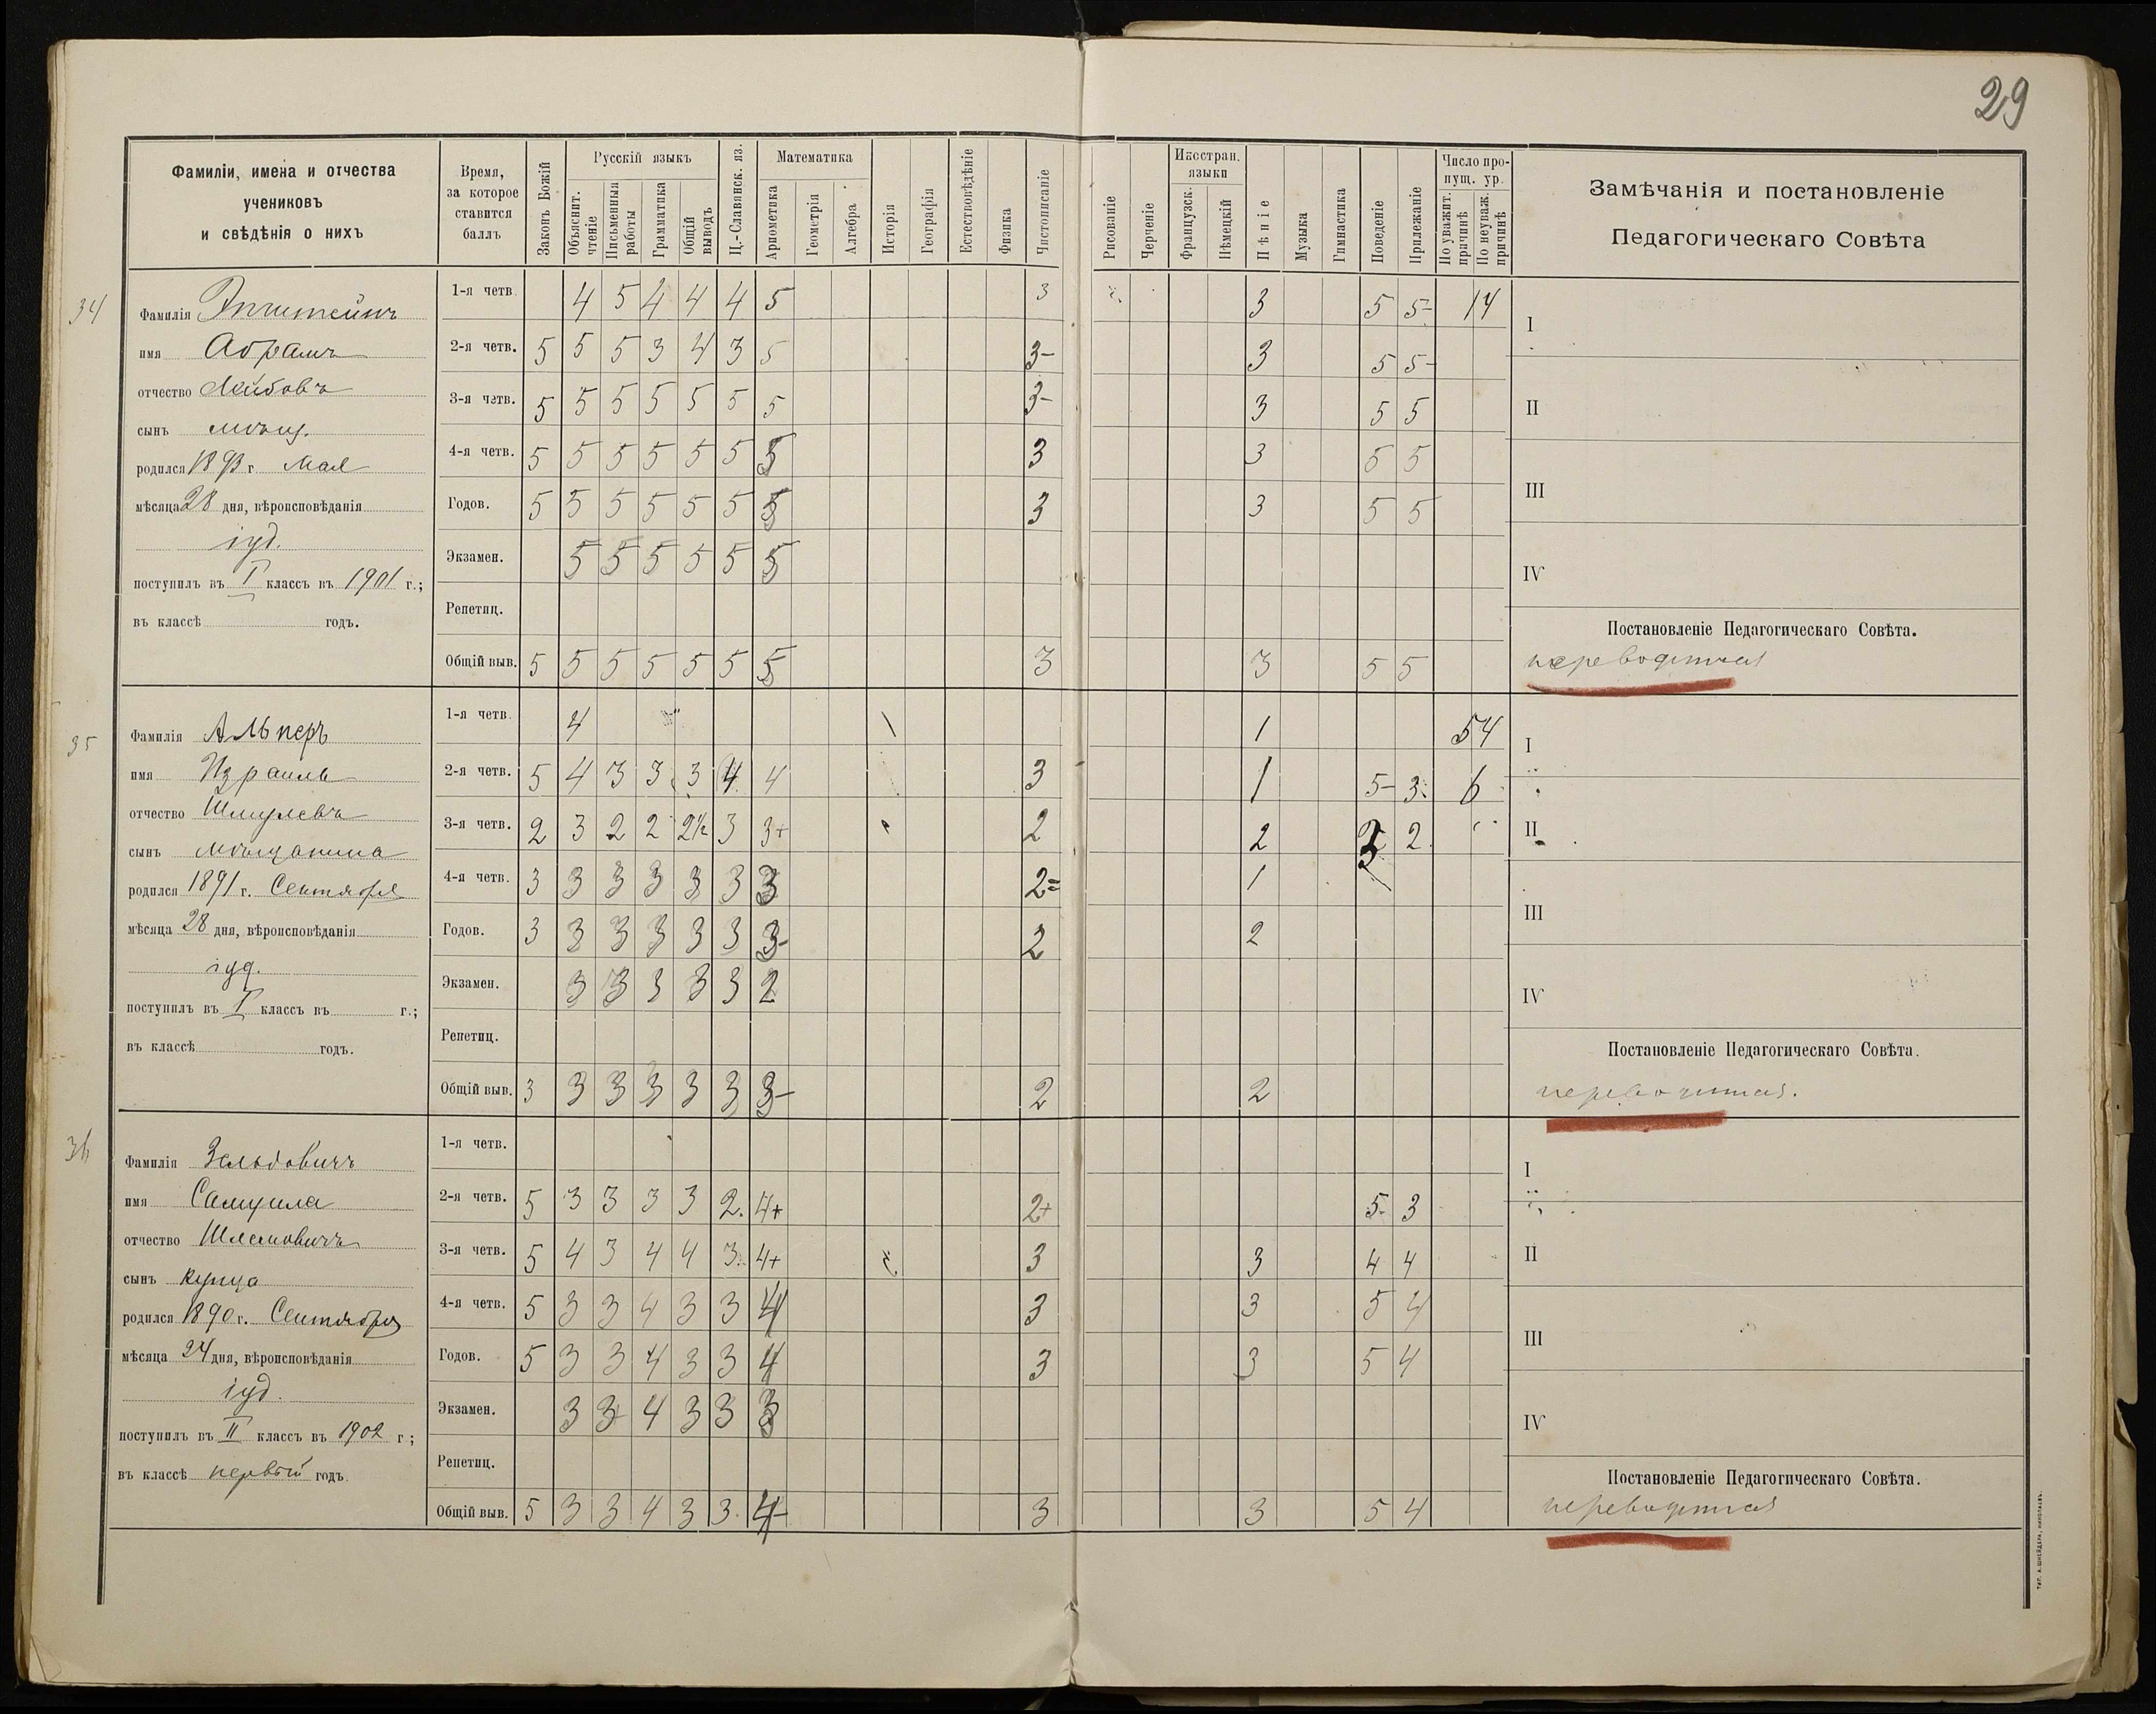 29
Фамиліи, имена и отчества
учениковъ
и свѣдѣнія о нихъ
Время,
за которое
ставится
баллъ
Законъ Божій
Русскій языкъ
Объяснит. чтеніе
Письменныя работы
Грамматика
Общій выводъ
Ц.-Славянск. яз.
Математика
Ариѳметика
Геометрія
Алгебра
Исторія
Географія
Естествовѣдѣніе
Физика
Чистописаніе
Рисованіе
Черченіе
Иностран. языки
Французск.
Нѣмецкій
Пѣніе
Музыка
Гимнастика
Поведеніе
Прилежаніе
Число пропущ. ур.
По уважит. причинѣ
По неуваж. причинѣ
Замѣчанія и постановленіе
Педагогическаго Совѣта
34
Фамилія Эпштейнъ
имя Абрамъ
отчество Лейбовъ
сынъ мѣщ.
родился 1893 г. Мая
мѣсяца 28 дня, вѣроисповѣданія
іуд.
поступилъ въ I классъ въ 1901 г.;
въ классѣ годъ.
1-я четв. 4 5 4 4 4 5 3 3 5 5- 14
2-я четв. 5 5 5 3 4 3 5 3- 3 5 5-
3-я четв. 5 5 5 5 5 5 5 3- 3 5 5
4-я четв. 5 5 5 5 5 5 5 3 3 5 5
Годов. 5 5 5 5 5 5 5 3 3 5 5
Экзамен. 5 5 5 5 5 5
Репетиц.
Общій выв. 5 5 5 5 5 5 5 3 3 5 5
I
II
III
IV
Постановленіе Педагогическаго Совѣта.
переводится
35
Фамилія Альперъ
имя Израиль
отчество Шмулевъ
сынъ мѣщанина
родился 1891 г. Сентября
мѣсяца 28 дня, вѣроисповѣданія
іуд.
поступилъ въ I классъ въ г.;
въ классѣ годъ.
1-я четв. 4 1 54
2-я четв. 5 4 3 3 3 4 4 3 1 5- 3 6
3-я четв. 2 3 2 2 2½ 3 3+ 2 2 2
4-я четв. 3 3 3 3 3 3 3 2= 1
Годов. 3 3 3 3 3 3 3- 2 2
Экзамен. 3 3 3 3 3 2
Репетиц.
Общій выв. 3 3 3 3 3 3 3- 2 2
I
II
III
IV
Постановленіе Педагогическаго Совѣта.
переводится.
36
Фамилія Зельдовичъ
имя Самуила
отчество Шлемовичъ
сынъ купца
родился 1890 г. Сентября
мѣсяца 24 дня, вѣроисповѣданія
іуд.
поступилъ въ II классъ въ 1902 г;
въ классѣ первый годъ.
1-я четв.
2-я четв. 5 3 3 3 3 2. 4+ 2+ 5- 3
3-я четв. 5 4 3 4 4 3. 4+ 3 3 4 4
4-я четв. 5 3 3 4 3 3 4 3 3 5 4
Годов. 5 3 3 4 3 3 4 3 3 5 4
Экзамен. 3 3+ 4 3 3 3
Репетиц.
Общій выв. 5 3 3 4 3 3. 4- 3 3 5 4
I
II
III
IV
Постановленіе Педагогическаго Совѣта.
переводится
ТИП. А. ШНЕЙДЕРА, НИКОЛАЕВЪ.